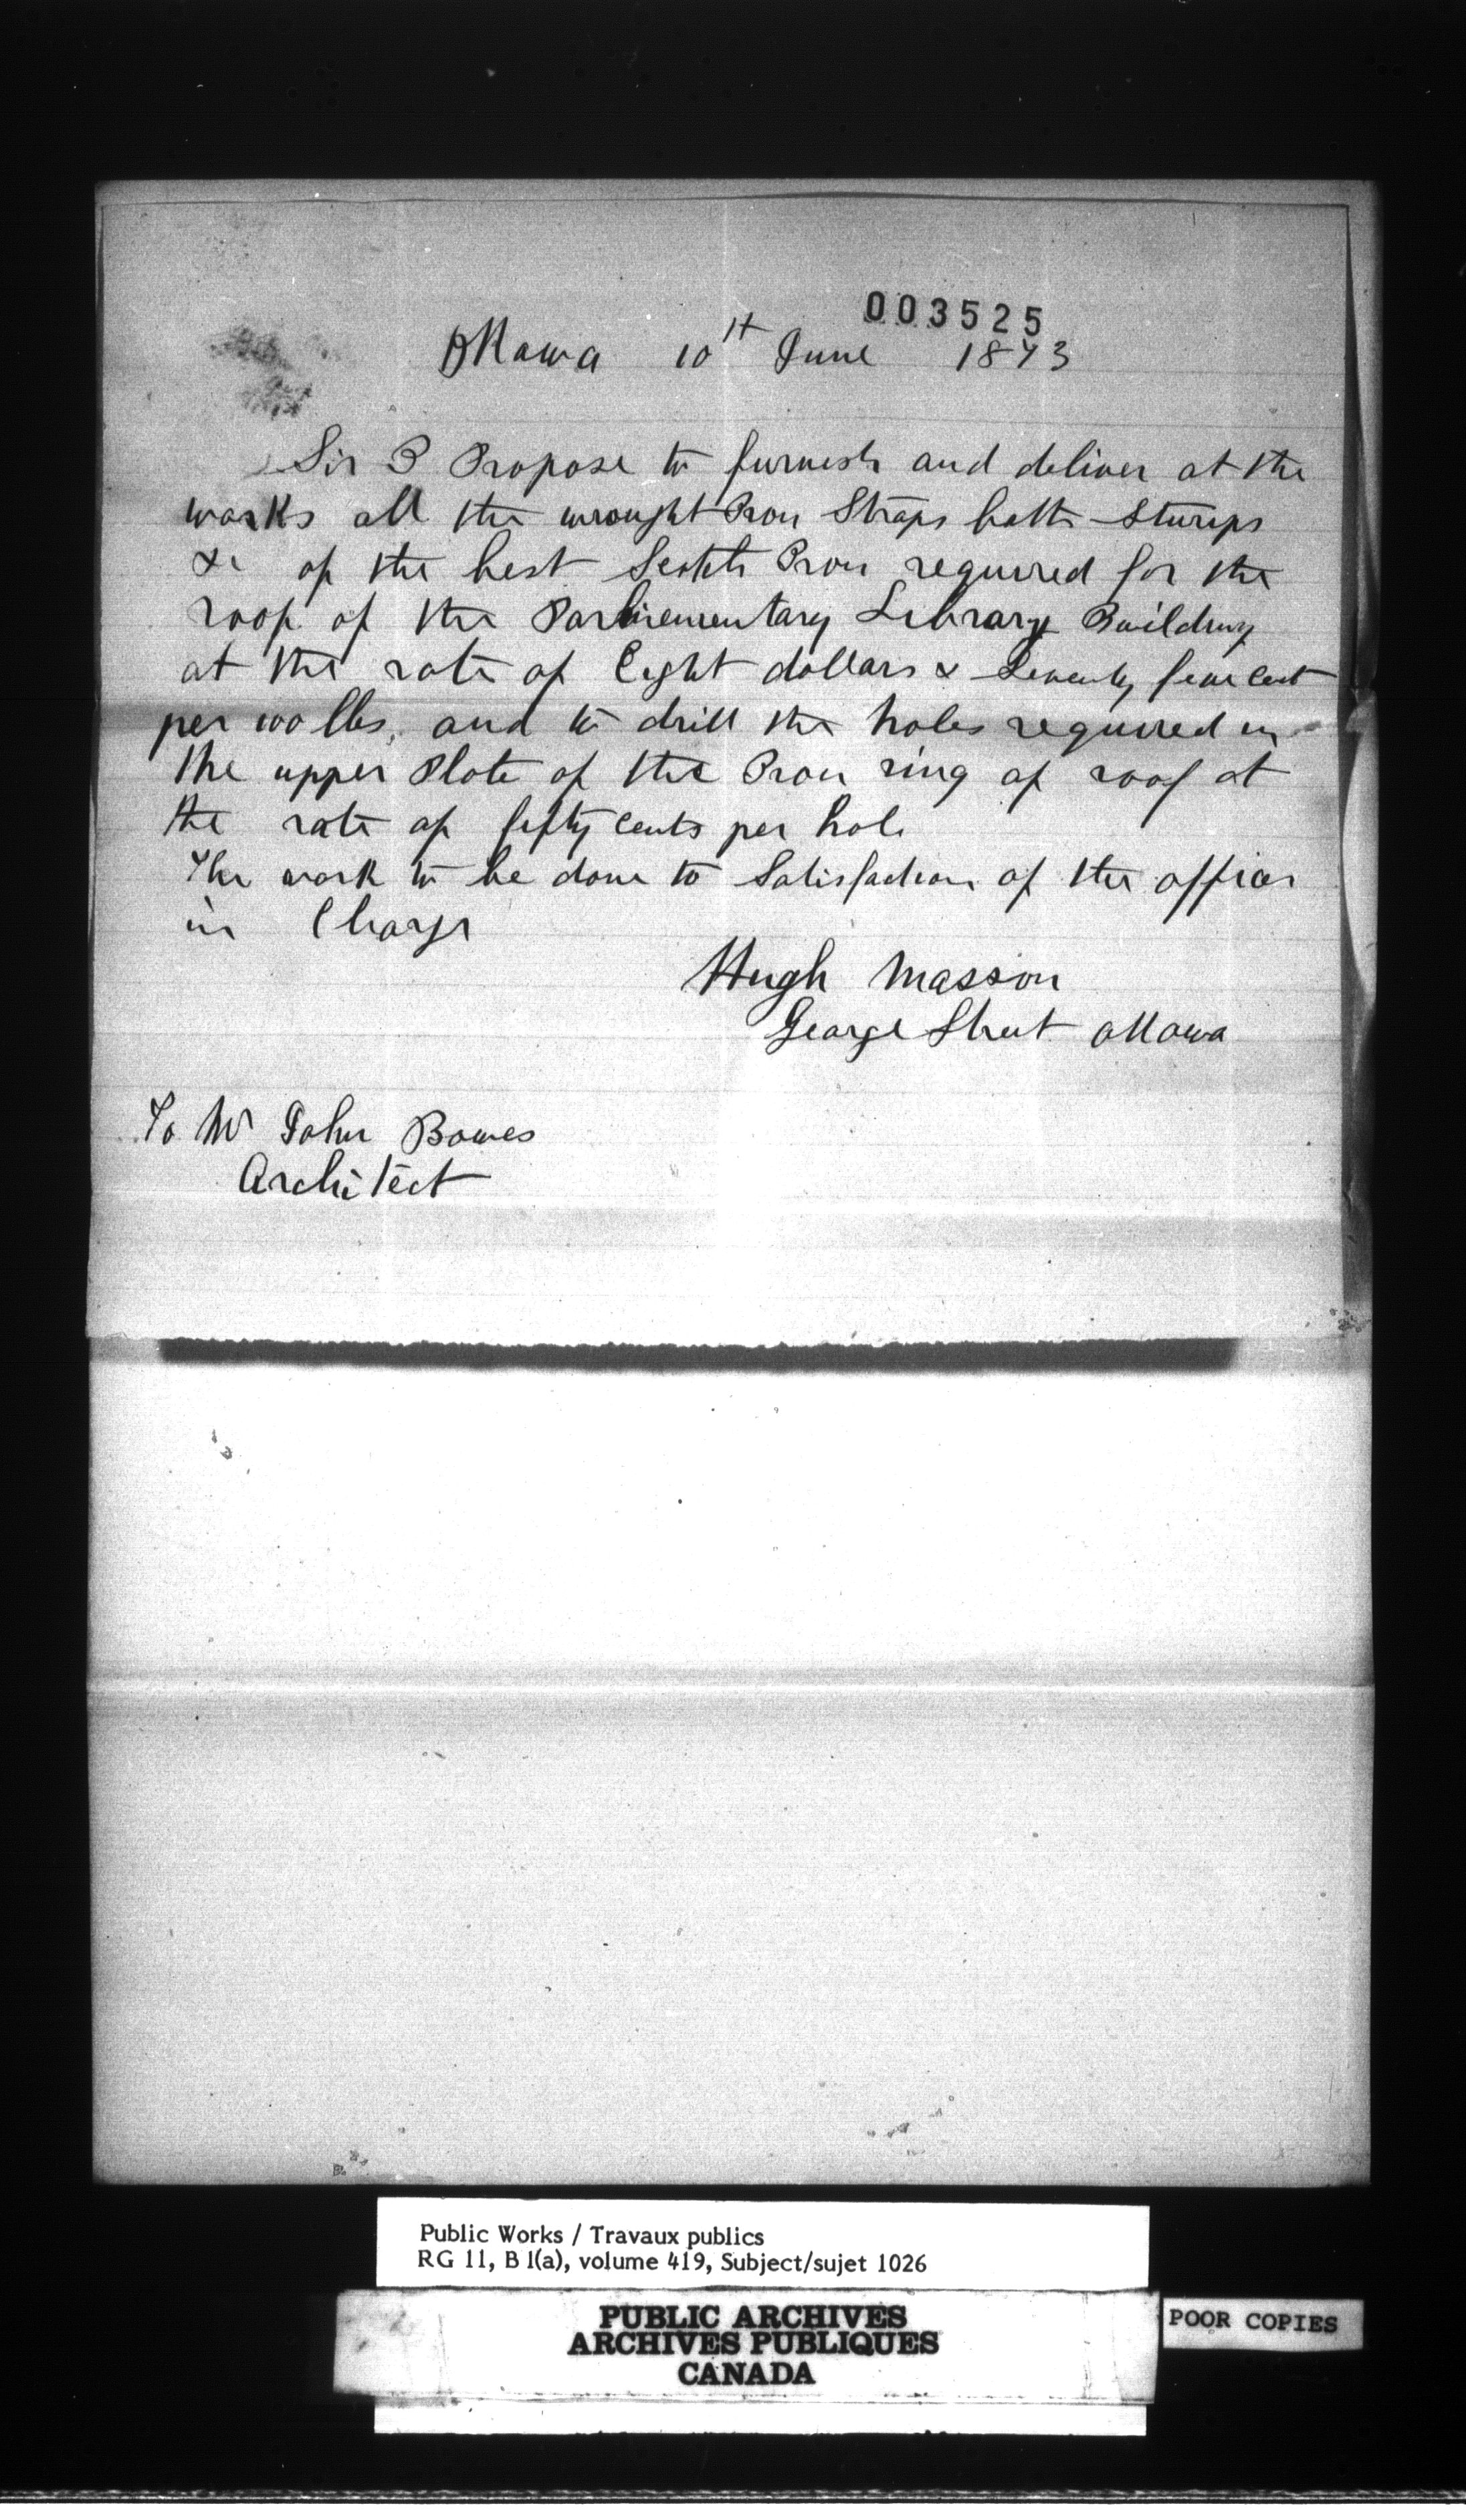 003525
Ottawa 10th June 1873
Sir I Propose to furnish and deliver at the
works all the wrought Iron Straps bolts Sturips
&c of the best Scotch Iron required for the
roof of the Parliementary Library Building
at the rate of Eight dollars & Seventy five Cent
per 100 lbs, and to drill the holes required in
the upper Plate of the Iron ring of roof at
the rate of fifty Cents per hole
The work to be done to Satisfaction of the officer
in Charge
Hugh Masson
George Street Ottawa
To Mr John Bowes
Architect
Public Works / Travaux publics
RG 11, B 1(a), volume 419, Subject/sujet 1026
PUBLIC ARCHIVES
ARCHIVES PUBLIQUES
CANADA
POOR COPIES